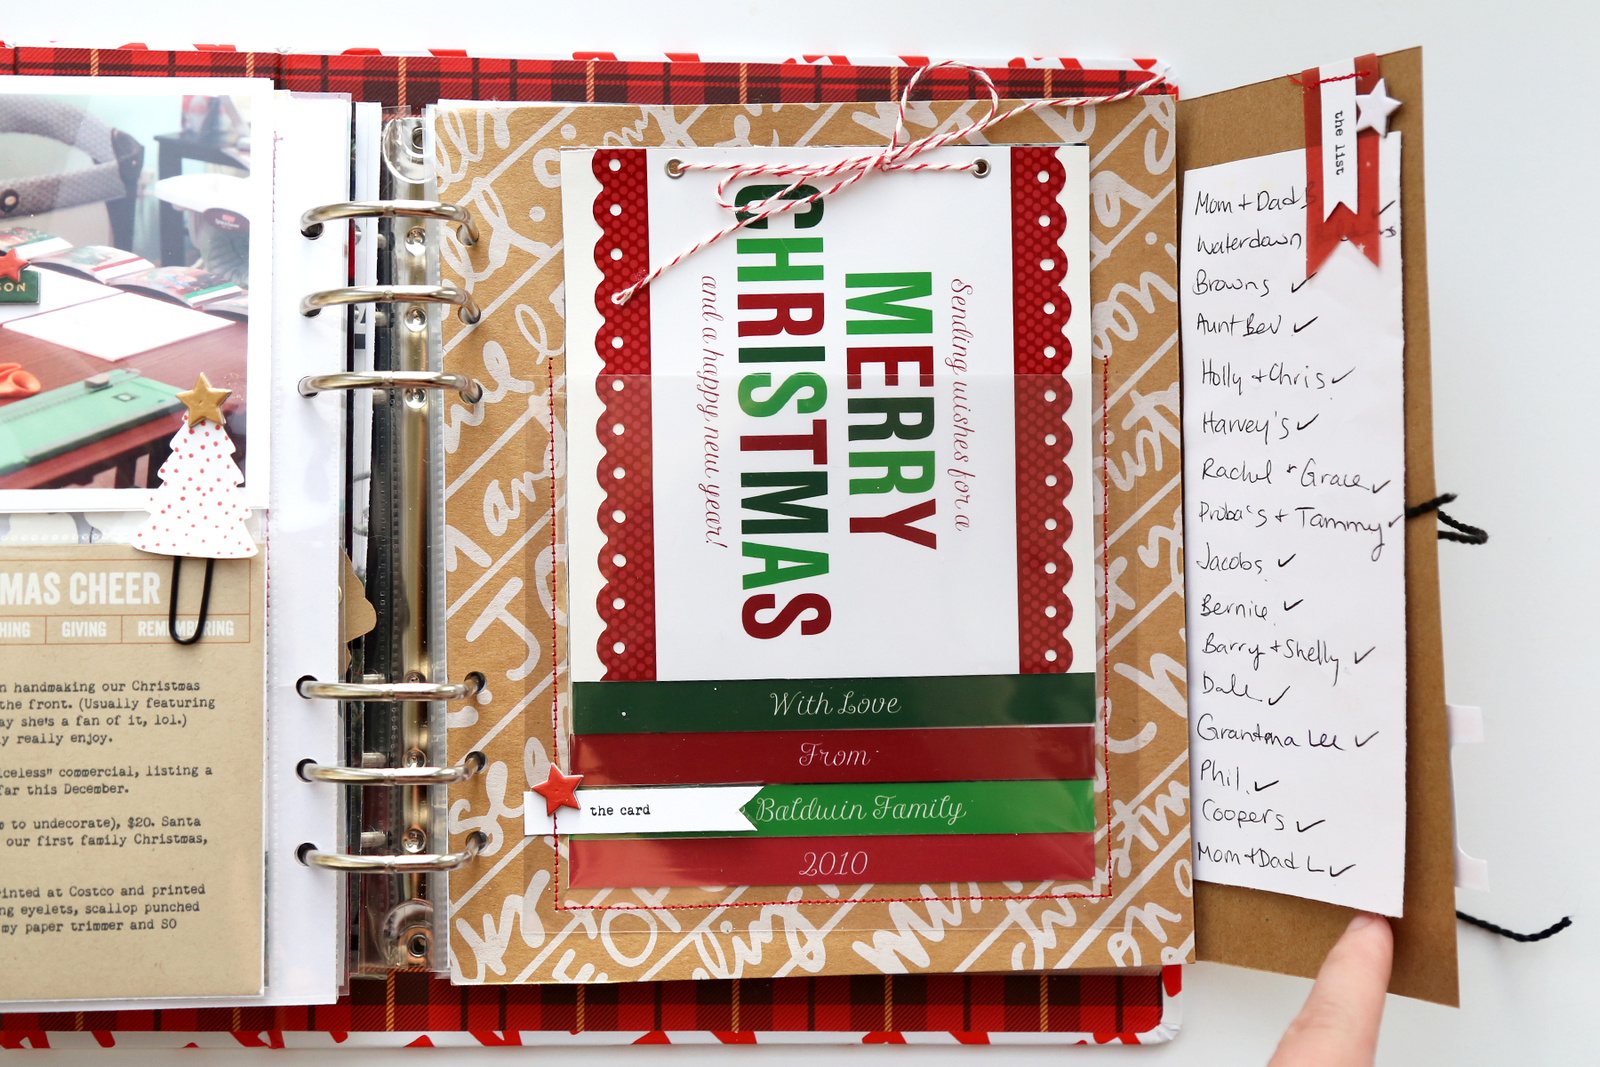 SON
MAS CHEER
HING GIVING REMEMBERING
n handmaking our Christmas
the front. (Usually featuring
ay she's a fan of it, lol.)
y really enjoy.
iceless" commercial, listing a
far this December.
e to undecorate), $20. Santa
our first family Christmas,
rinted at Costco and printed
ng eyelets, scallop punched
my paper trimmer and SO
Sending wishes for a
MERRY
CHRISTMAS
and a happy new year!
With Love
From
the card
Baldwin Family
2010
the list
Mom + Dad B ✓
Waterdown
Browns ✓
Aunt Bev ✓
Holly + Chris ✓
Harvey's ✓
Rachel + Grace ✓
Proba's + Tammy ✓
Jacobs ✓
Bernice ✓
Barry + Shelly ✓
Dale ✓
Grandma Lee ✓
Phil ✓
Coopers ✓
Mom + Dad L ✓